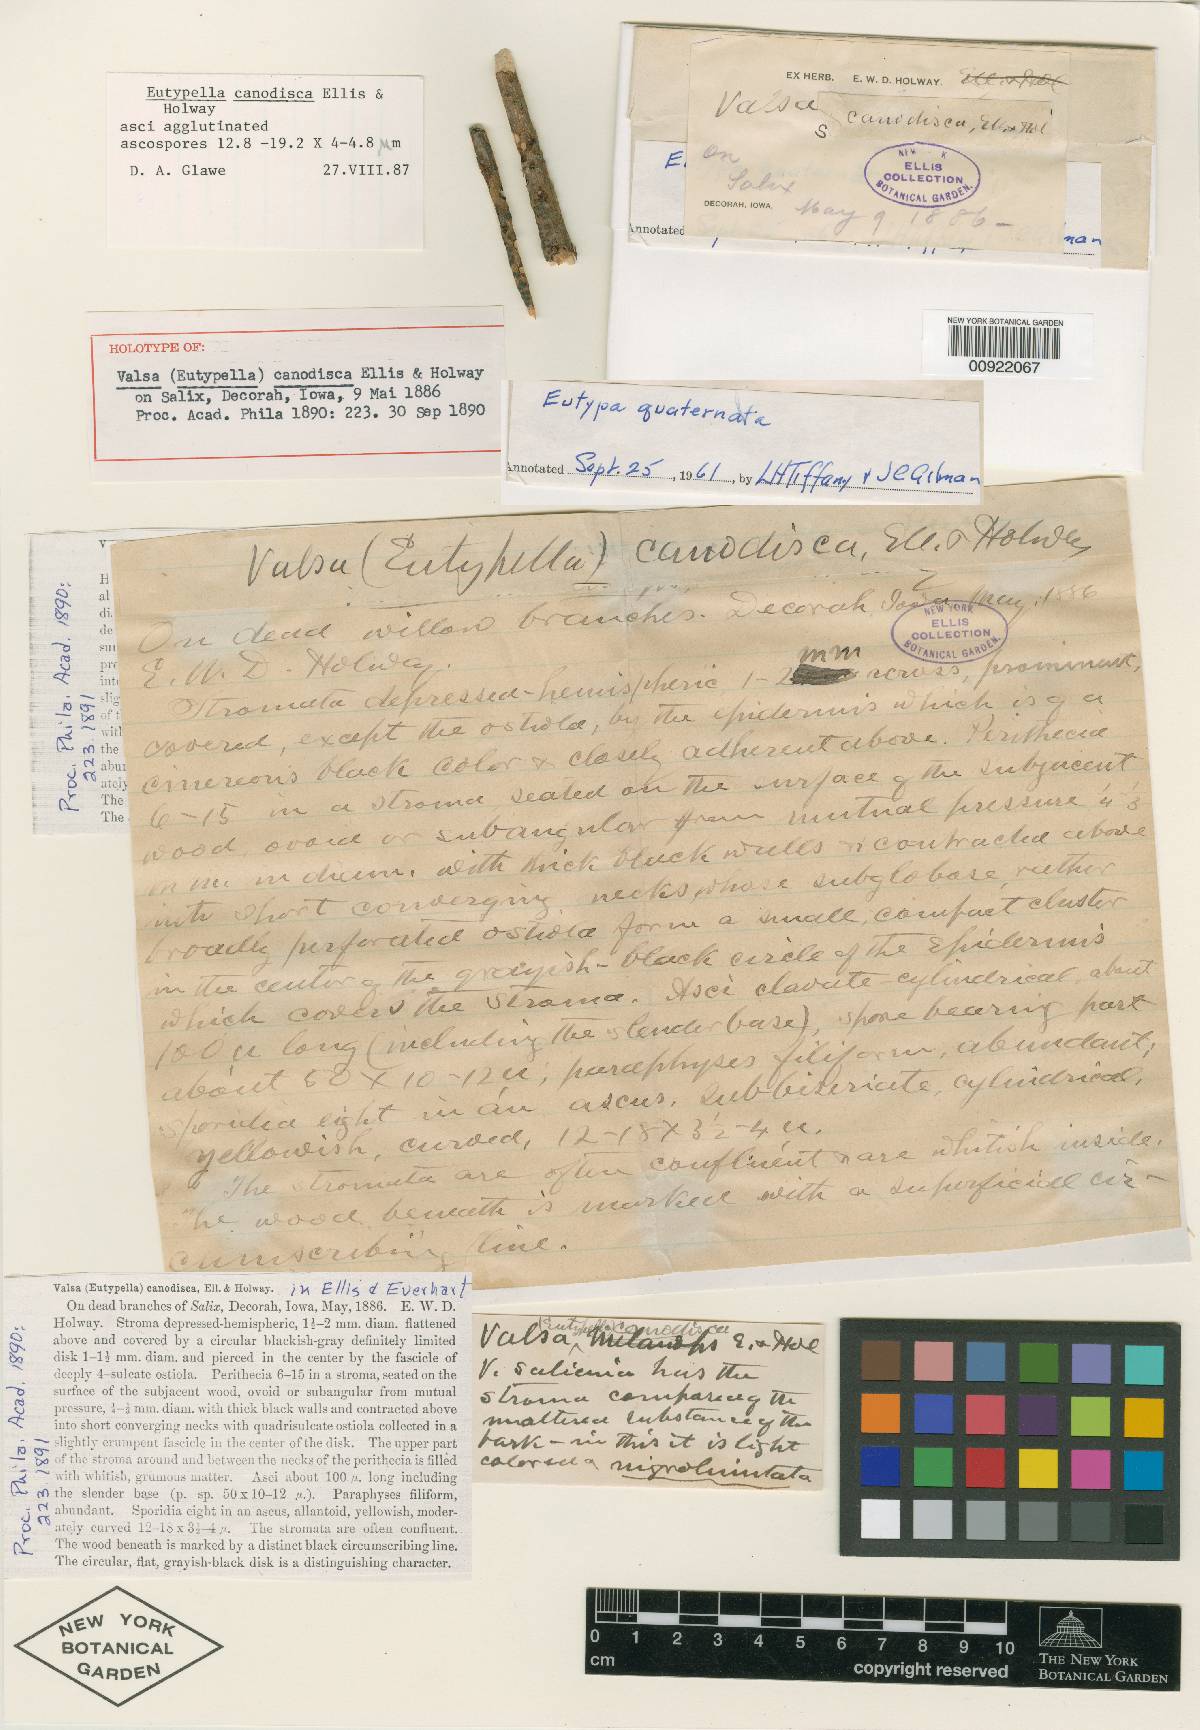 Eutypella canodisca Ellis &
Holway
asci agglutinated
ascospores 12.8 -19.2 X 4-4.8 µm
D. A. Glawe 27.VIII.87
EX HERB. E. W. D. HOLWAY. Ell. & Hol
Valsa canodisca, Ell. & Hol
S
on
Salix
DECORAH, IOWA, May 9 1886-
NEW YORK
ELLIS
COLLECTION
BOTANICAL GARDEN.
E.
Annotated
man
NEW YORK BOTANICAL GARDEN
00922067
HOLOTYPE OF:
Valsa (Eutypella) canodisca Ellis & Holway
on Salix, Decorah, Iowa, 9 Mai 1886
Proc. Acad. Phila 1890: 223. 30 Sep 1890
Eutypa quaternata
Annotated Sept. 25, 1961, by LHTiffany & JCGilman
Proc. Phila. Acad. 1890:
223. 1891
Valsa (Eutypella) canodisca, Ell. & Holway
On dead willow branches. Decorah, Iowa May, 1886
E. W. D Holway.
NEW YORK
ELLIS
COLLECTION
BOTANICAL GARDEN.
Stromata depressed-hemispheric 1-2 mm across, prominent,
covered, except the ostiola, by the epidermis which is of a
cinereous black color & closely adherent above. Perithecia
6-15 in a stroma seated on the surface of the subjacent
wood ovoid or subangular from mutual pressure ¼-⅓
mm. in diam. with thick black walls & contracted above
into short converging necks, whose subglobose, rather
broadly perforated ostiola form a small, compact cluster
in the center of the grayish-black circle of the epidermis
which covers the stroma. Asci clavate-cylindrical, about
100 u long (including the slender base), spore bearing part
about 50 x 10-12 u; paraphyses filiform, abundant;
sporidia eight in an ascus, subbiseriate, cylindrical,
yellowish, curved, 12-18 x 3½-4 u.
The stromata are often confluent & are whitish inside.
The wood beneath is marked with a superficial cir-
cumscribing line.
Valsa (Eutypella) canodisca, Ell. & Holway. in Ellis & Everhart
On dead branches of Salix, Decorah, Iowa, May, 1886. E. W. D.
Holway. Stroma depressed-hemispheric, 1½-2 mm. diam. flattened
above and covered by a circular blackish-gray definitely limited
disk 1-1½ mm. diam. and pierced in the center by the fascicle of
deeply 4-sulcate ostiola. Perithecia 6-15 in a stroma, seated on the
surface of the subjacent wood, ovoid or subangular from mutual
pressure, ¼-⅓ mm. diam. with thick black walls and contracted above
into short converging necks with quadrisulcate ostiola collected in a
slightly erumpent fascicle in the center of the disk. The upper part
of the stroma around and between the necks of the perithecia is filled
with whitish, grumous matter. Asci about 100 µ. long including
the slender base (p. sp. 50 x 10-12 µ.). Paraphyses filiform,
abundant. Sporidia eight in an ascus, allantoid, yellowish, moder-
ately curved 12-18 x 3½-4 µ. The stromata are often confluent.
The wood beneath is marked by a distinct black circumscribing line.
The circular, flat, grayish-black disk is a distinguishing character.
Proc. Phila. Acad. 1890:
223. 1891
Eutypella canodisca
Valsa E. & Hol
V. salicina has the
stroma composed of the
unaltered substance of the
bark - in this it is light
colored
NEW YORK
BOTANICAL
GARDEN
0 1 2 3 4 5 6 7 8 9 10
cm
copyright reserved
THE NEW YORK
BOTANICAL GARDEN